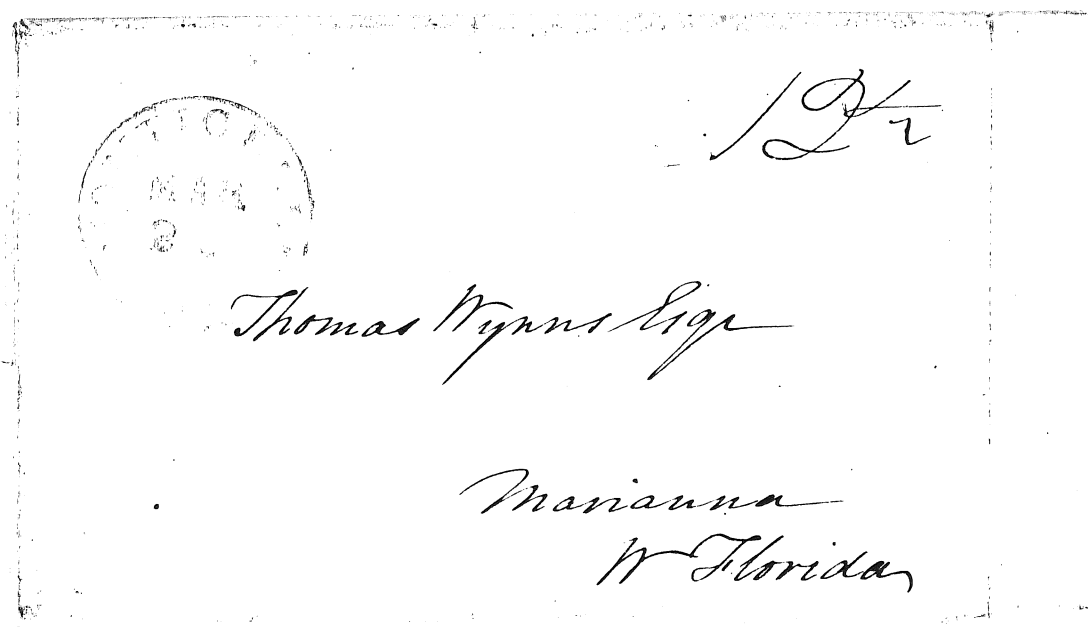 MAR
8
Thomas Wynns Esqr
Marianna
W Florida